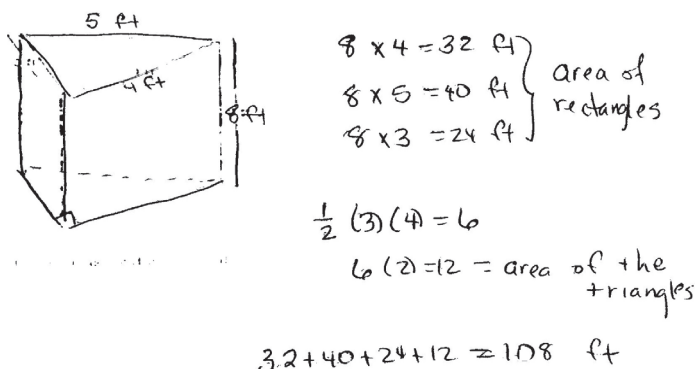 5 ft
4 ft
8 ft
8 x 4 = 32 ft
8 x 5 = 40 ft
8 x 3 = 24 ft
area of
rectangles
1/2 (3)(4) = 6
6(2) = 12 = area of the
triangles
32+40+24+12 = 108 ft